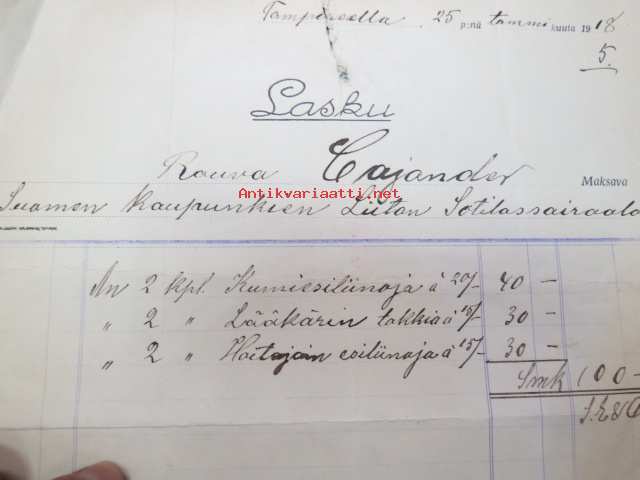 Tampereella 25 p:nä tammi kuuta 1918
5.
Lasku
Rouva Cajander Maksava
Antikvariaatti.net
Suomen Kaupunkien Liiton Sotilassairaala
2 kpl. Kumiesiliinoja á 20/- 40 -
" 2 " Lääkärin takkia á 15/- 30 -
" 2 " Hoitajain esiliinoja á 15/- 30 -
Smk 100 -